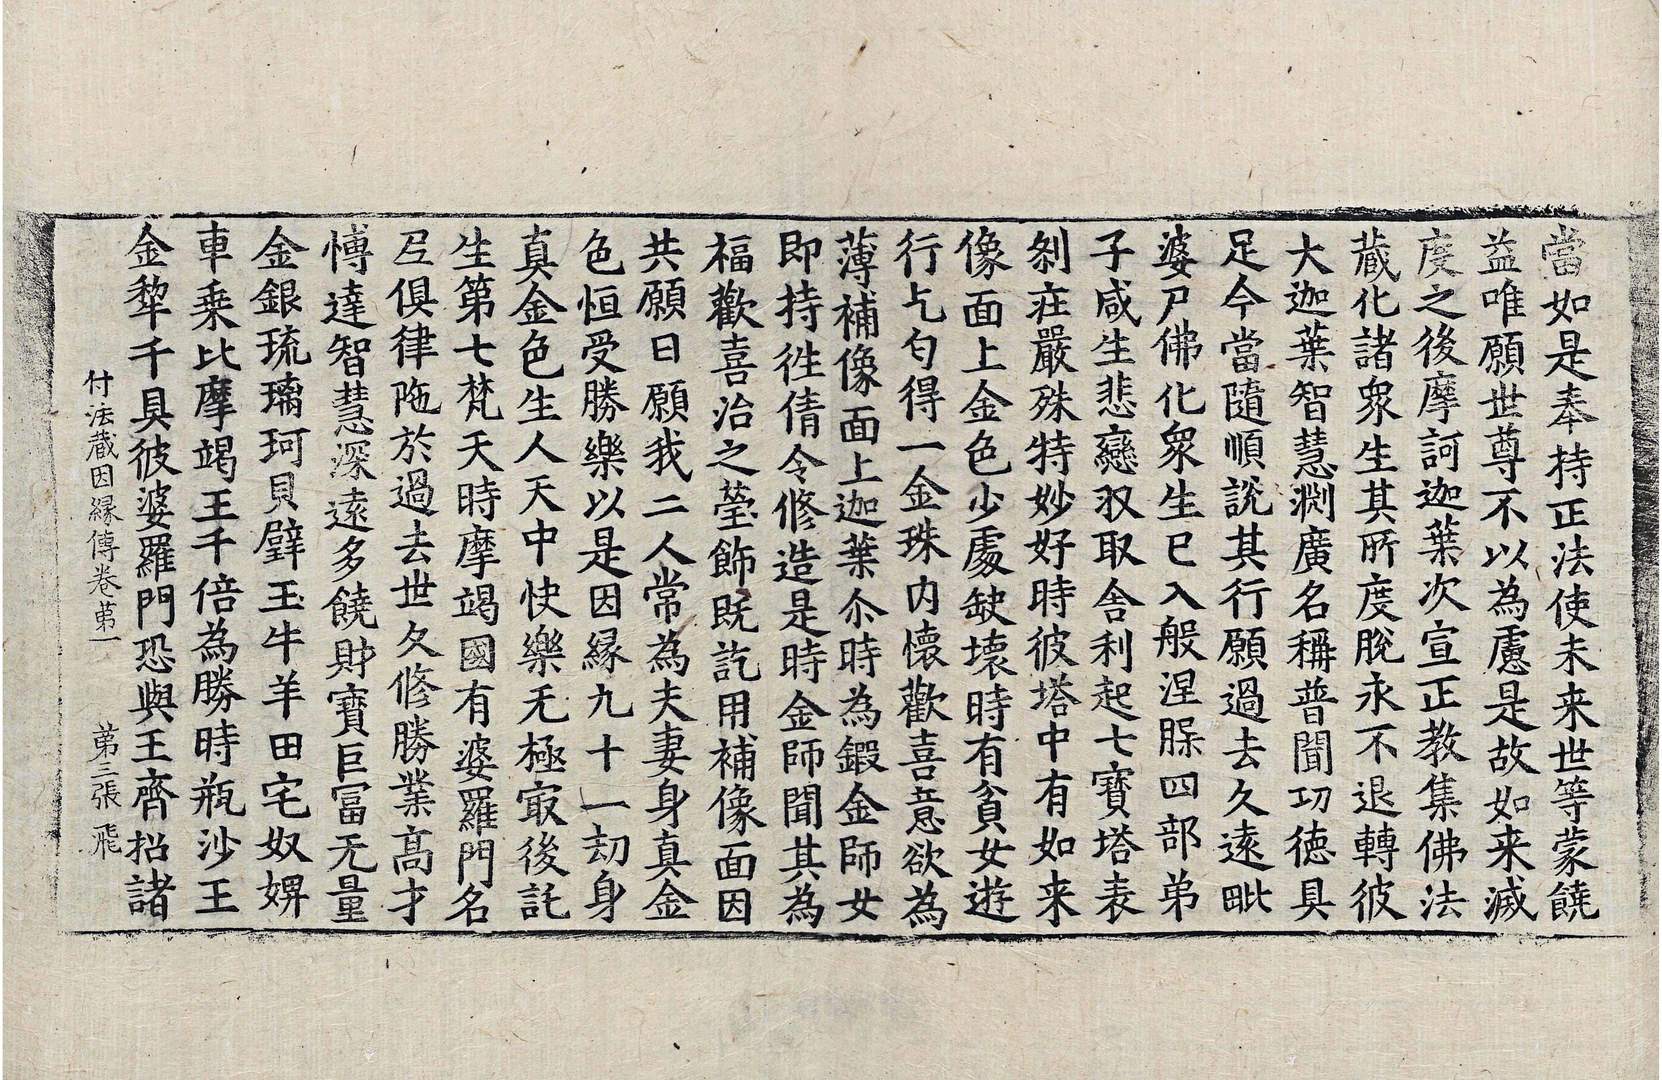 當如是奉持正法使未来世等蒙饒
益唯願世尊不以為慮是故如来滅
度之後摩訶迦葉次宣正教集佛法
蔵化諸衆生其所度脫永不退轉彼
大迦葉智慧渕廣名稱普聞功徳具
足今當隨順說其行願過去久遠毗
婆尸佛化衆生已入般涅槃四部弟
子咸生悲戀収取舎利起七寶塔表
刹莊嚴殊特妙好時彼塔中有如来
像面上金色少處缺壞時有貧女遊
行乞匃得一金珠内懷歡喜意欲為
薄補像面上迦葉尒時為鍛金師女
即持徃倩令修造是時金師聞其為
福歡喜治之瑩飾既訖用補像面因
共願曰願我二人常為夫妻身真金
色恒受勝樂以是因縁九十一劫身
真金色生人天中快樂无極㝡後託
生第七梵天時摩竭國有婆羅門名
尼俱律陁於過去世久修勝業高才
愽達智慧深遠多饒財寶巨冨无量
金銀琉璃珂貝璧玉牛羊田宅奴婢
車乗比摩竭王千倍為勝時瓶沙王
金犂千具彼婆羅門恐與王齊招諸
付法蔵因縁傳卷苐一　苐三張　飛